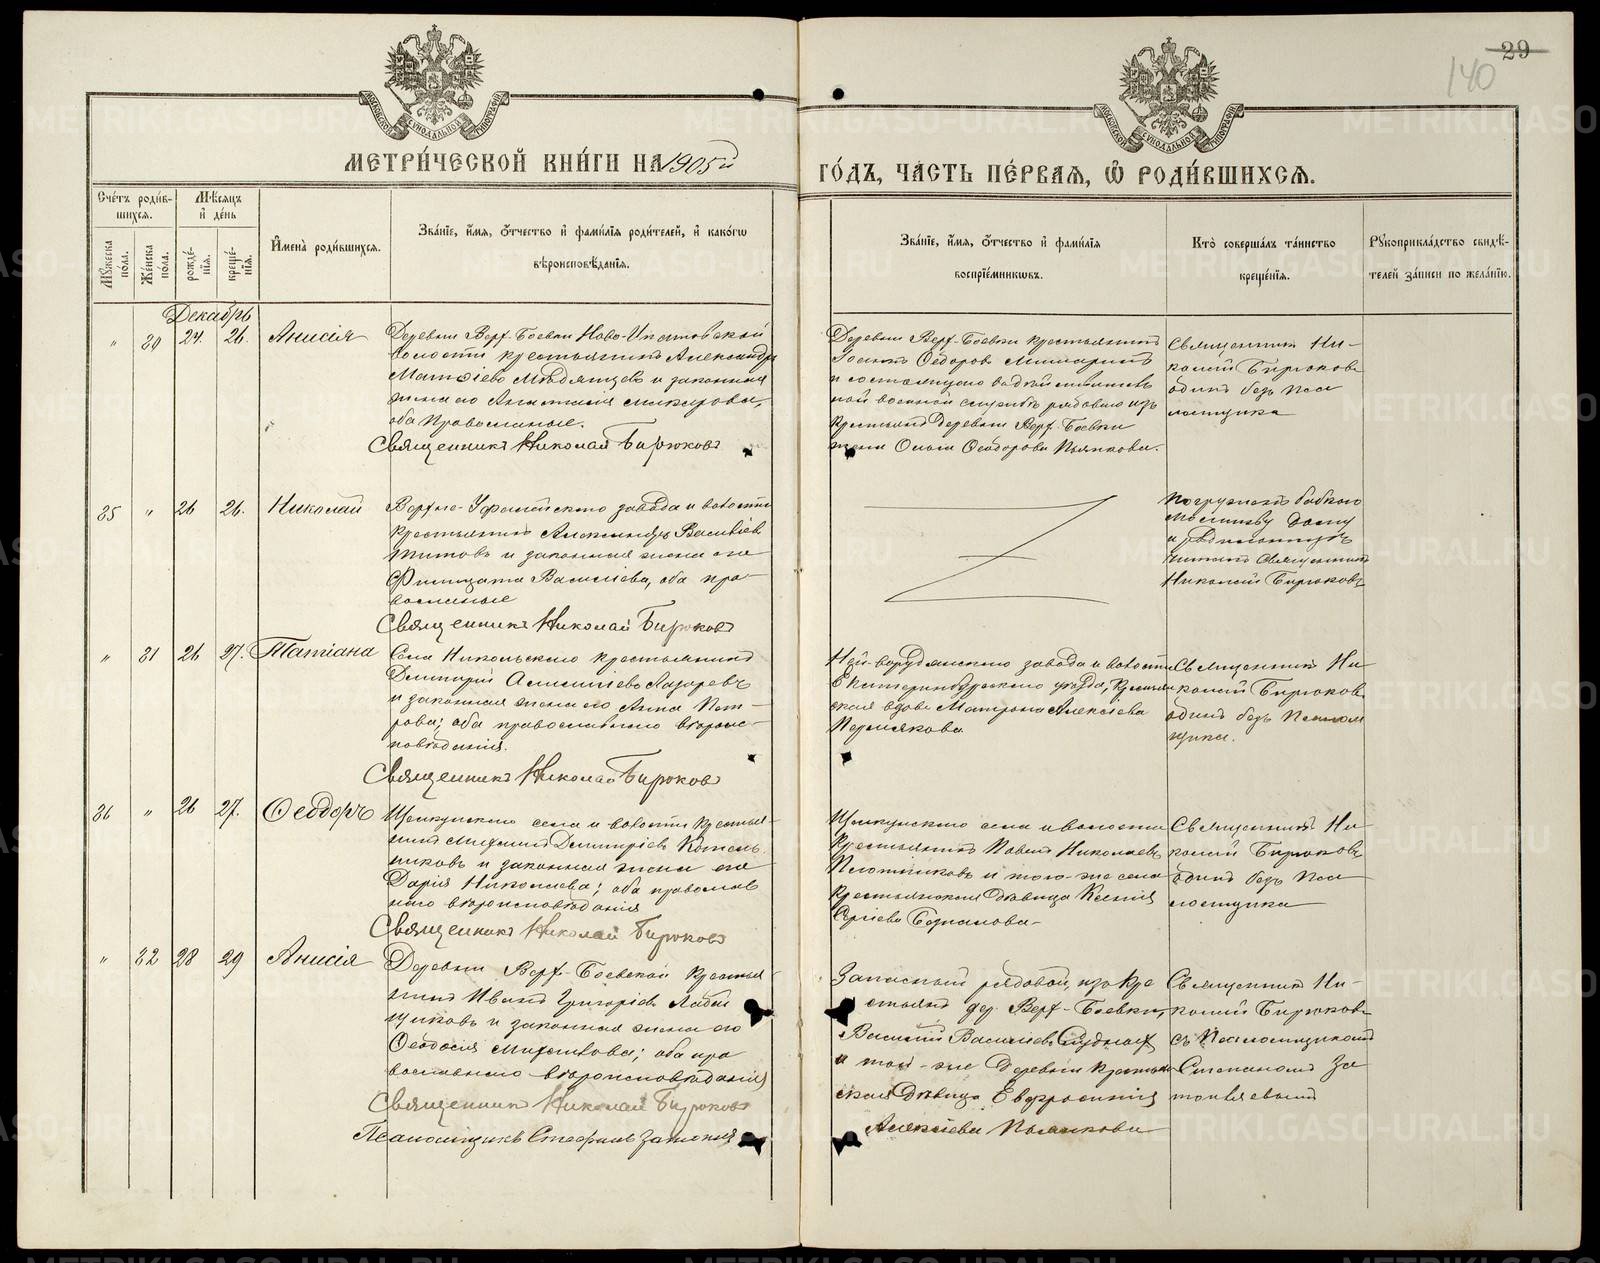 29
140
МЕТРИ́ЧЕСКОЙ КНИ́ГИ НА 1905й
ГО́ДЪ, ЧА́СТЬ ПЕ́РВАЯ, Ѡ РОДИ́ВШИХСЯ.
Сче́тъ роди́в-
шихся.
Мѣ́сяцъ
и҆ де́нь
Мꙋ́жеска по́ла.
Же́нска по́ла.
рожде́-
нїя.
креще́-
нїя.
И҆мена̀ роди́вшихся.
Зва́нїе, и҆́мя, ѻ҆́тчество и҆ фами́лїя роди́телей, и҆ како́гѡ
вѣроисповѣ́данїя.
Зва́нїе, и҆́мя, ѻ҆́тчество и҆ фами́лїя
воспрїе́мникѡвъ.
Кто̀ соверша́лъ та́инство
креще́нїя.
Рꙋкоприкла́дство свидѣ́-
телей за́писи по жела́нїю.
Декабрь
" 30 24. 26. Анисія
Деревни Верх-Боевки Ново-Ипатовской
волости крестьянинъ Александръ
Матѳіевъ Мѣдянцевъ и законная
жена его Анастасія
оба Православные.
Священникъ Николай Бирюковъ
Деревни Верх-Боевки крестьянинъ
Ѳедоровъ
и состоящаго въ дѣйствитель
ной военной службѣ рядового изъ
крестьянъ Деревни Верх-Боевки
жена Ольга Ѳеодорова Пьянкова.
Священникъ Ни-
колай Бирюковъ
одинъ безъ Пса
ломщика
35 " 26 26. Николай
Верхне-Уфалейскаго завода и волости
крестьянинъ Александръ Василіевъ
Титовъ и законная жена его
Васильева, оба пра-
вославные
Священникъ Николай Бирюковъ
Погруженъ бабкою
Молитву
Священникъ
Николай Бирюковъ
" 31 26 27. Татіана
Села Никольскаго крестьянинъ
Димитрій Лазаревъ
и законная жена его Анна Пет-
рова; оба православнаго вѣроис-
повѣданія.
Священникъ Николай Бирюковъ
завода и волости
Екатеринбургскаго уѣзда, Крестьян
ская вдова Матрона Алексіева
Пермякова
Священникъ Ни-
колай Бирюковъ
одинъ безъ Псалом
щика.
36 " 26 27. Ѳеодоръ
Щелкунскаго села и волости Крестья-
нинъ Димитріевъ Котель
никовъ и законная жена его
Дарія Николаева; оба православ
наго вѣроисповѣданія
Священникъ Николай Бирюковъ
Щелкунскаго села и волости
Крестьянинъ Павелъ Николаевъ
Плотниковъ и того-же села
Крестьянская Дѣвица Ксенія
Сергіева
Священникъ Ни
колай Бирюковъ
одинъ безъ Пса
ломщика
" 32 28 29 Анисія
Деревни Верх-Боевской Крестья
нинъ Иванъ Григоріевъ
и законная жена его
Ѳеодосія оба пра
вославнаго вѣроисповѣданія
Священникъ Николай Бирюковъ
Псаломщикъ Стефанъ
Запасный рядовой, изъ Кре
стьянъ дер. Верх-Боевки,
Василій Василіевъ
и той-же Деревни Крестьян
ская Дѣвица Евфросинія
Алексіева Пьянкова
Священникъ Ни-
колай Бирюковъ
съ Псаломщикомъ
Стефаномъ